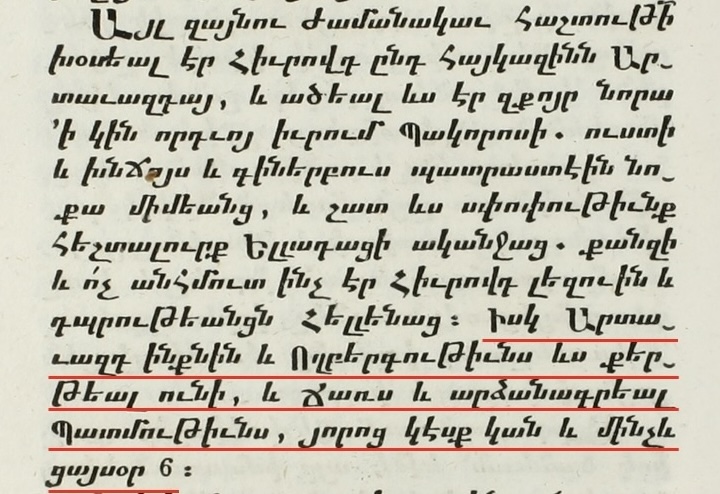 Այլ զայնու ժամանակաւ հաշտութի՛
խօսեալ էր Հիւրովդ ընդ հայկազինն Ար֊
տաւազդայ, և ածեալ ևս էր զքոյր նորա
՚ի կին որդւոյ իւրում Պակորոսի. ուստի
և խնճոյս և գիներբուս պատրաստէին նո֊
քա միմեանց, և շատ ևս սփոփութիւնք
հեշտալուրք Ելլադացի ականջաց. քանզի
և ո՛չ անհմուտ ինչ էր Հիւրովդ լեզուին և
դպրութեանցն Հելլենաց։ Իսկ Արտա֊
ւազդ ինքնին և Ողբերգութիւնս ևս քեր֊
թեալ ունի, և ճառս և արձանագրեալ
Պատմութիւնս, յորոց կէսք կան և մինչև
ցայսօր 6։